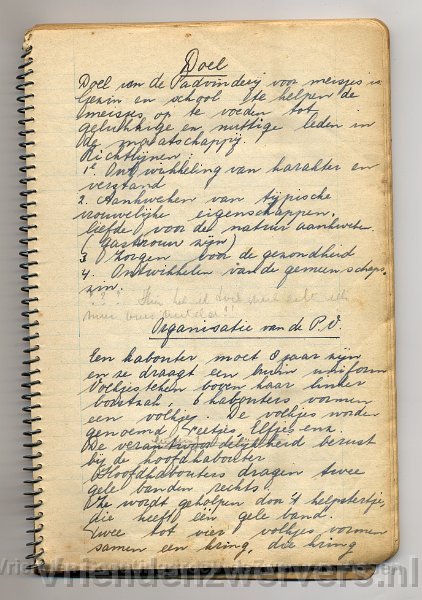 Doel
Doel van de Padvinderij voor meisjes is
Gezin en school te helpen de
meisjes op te voeden tot
gelukkige en nuttige leden in
de maatschappij.
Richtlijnen:
1e Ontwikkeling van karakter en
verstand
2. Aankweken van typische
vrouwelijke eigenschappen.
liefde voor de natuur aankweken
(Gastvrouw zijn)
3 Zorgen voor de gezondheid
4. Ontwikkelen van de gemeenschaps-
zin.
Organisatie van de P.V.
Een kabouter moet 8 jaar zijn
en ze draagt een bruin uniform
Volkjesteken boven haar linker
borstzak. 6 kabouters vormen
een volkje. De volkjes worden
genoemd Elfjes enz.
De verantwoordelijkheid berust
bij de hoofdkabouter
Hoofdkabouters dragen twee
gele banden rechts.
Ze wordt geholpen door 't helpstertje,
die heeft één gele band.
Twee tot vier volkjes vormen
samen een kring, die kring
vriendenzwervers.nl